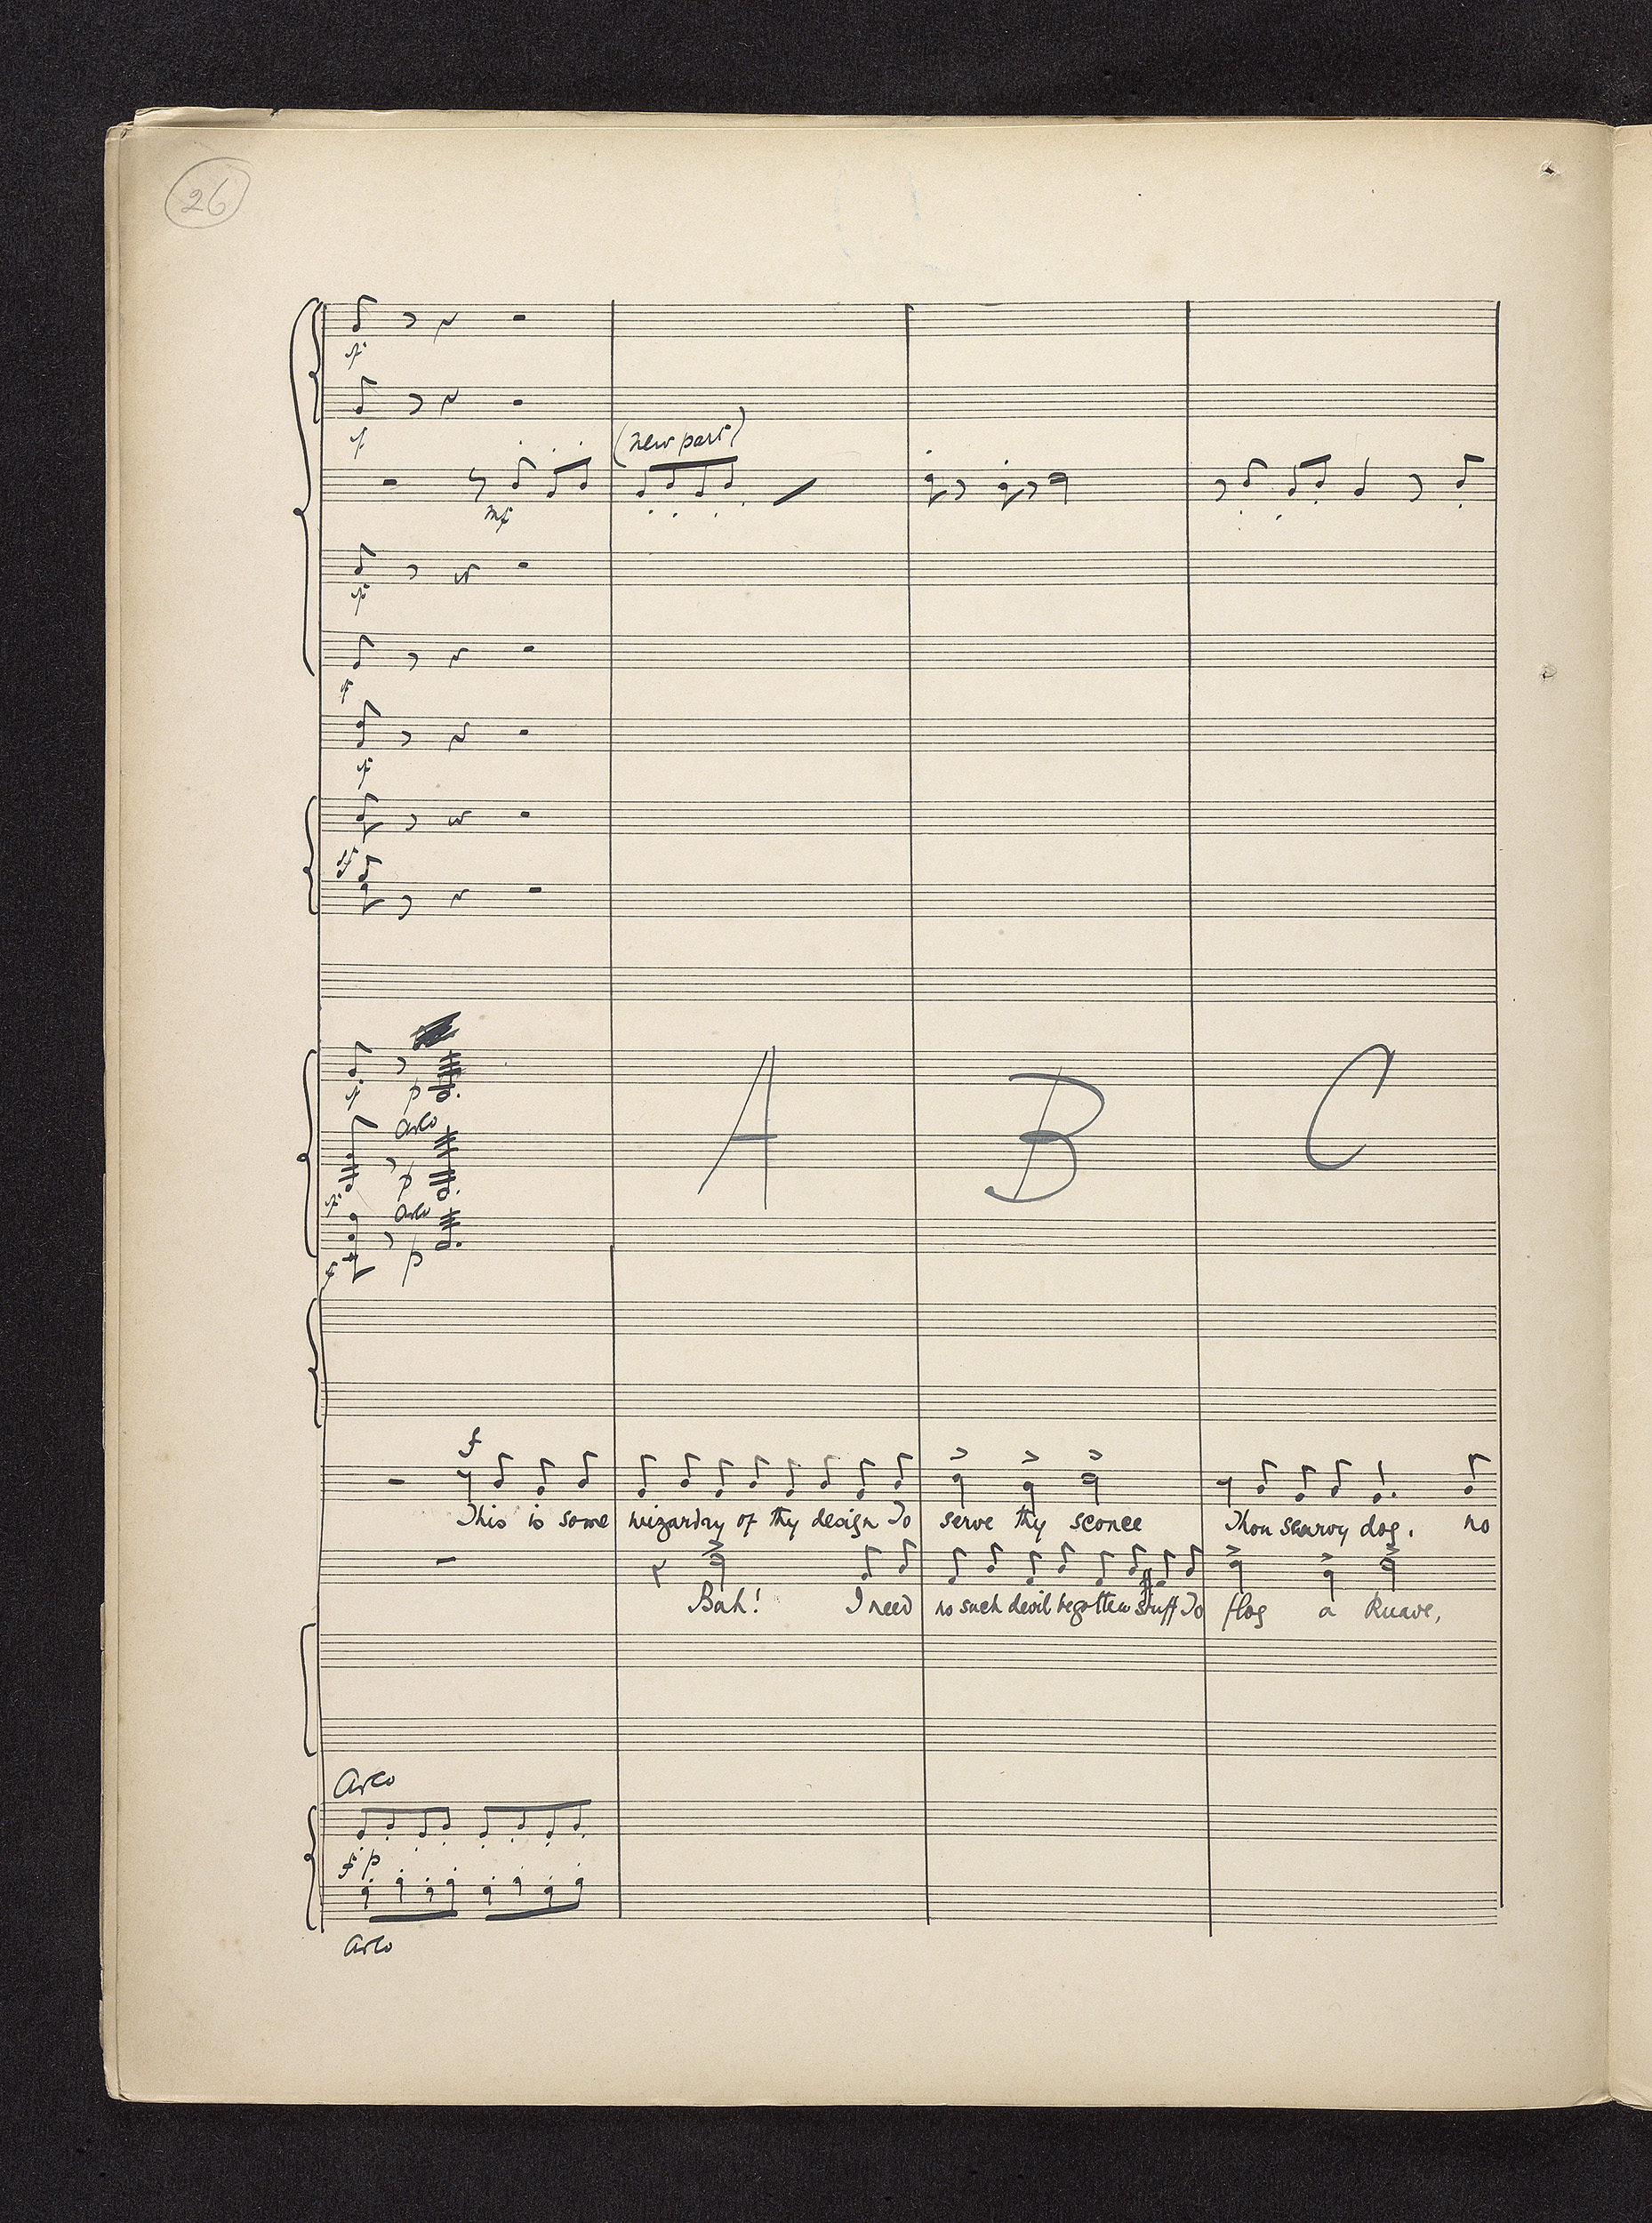 26
sf
sf
(new part)
mf
sf
sf
sf
sf
sf p
Arco
A B C
sf p
Arco
sf p
f
This is some wizardry of thy design To serve thy sconce Thou scurvy dog. no
Bah! I need no such devil begotten stuff To flog a Knave,
Arco
f p
Arco